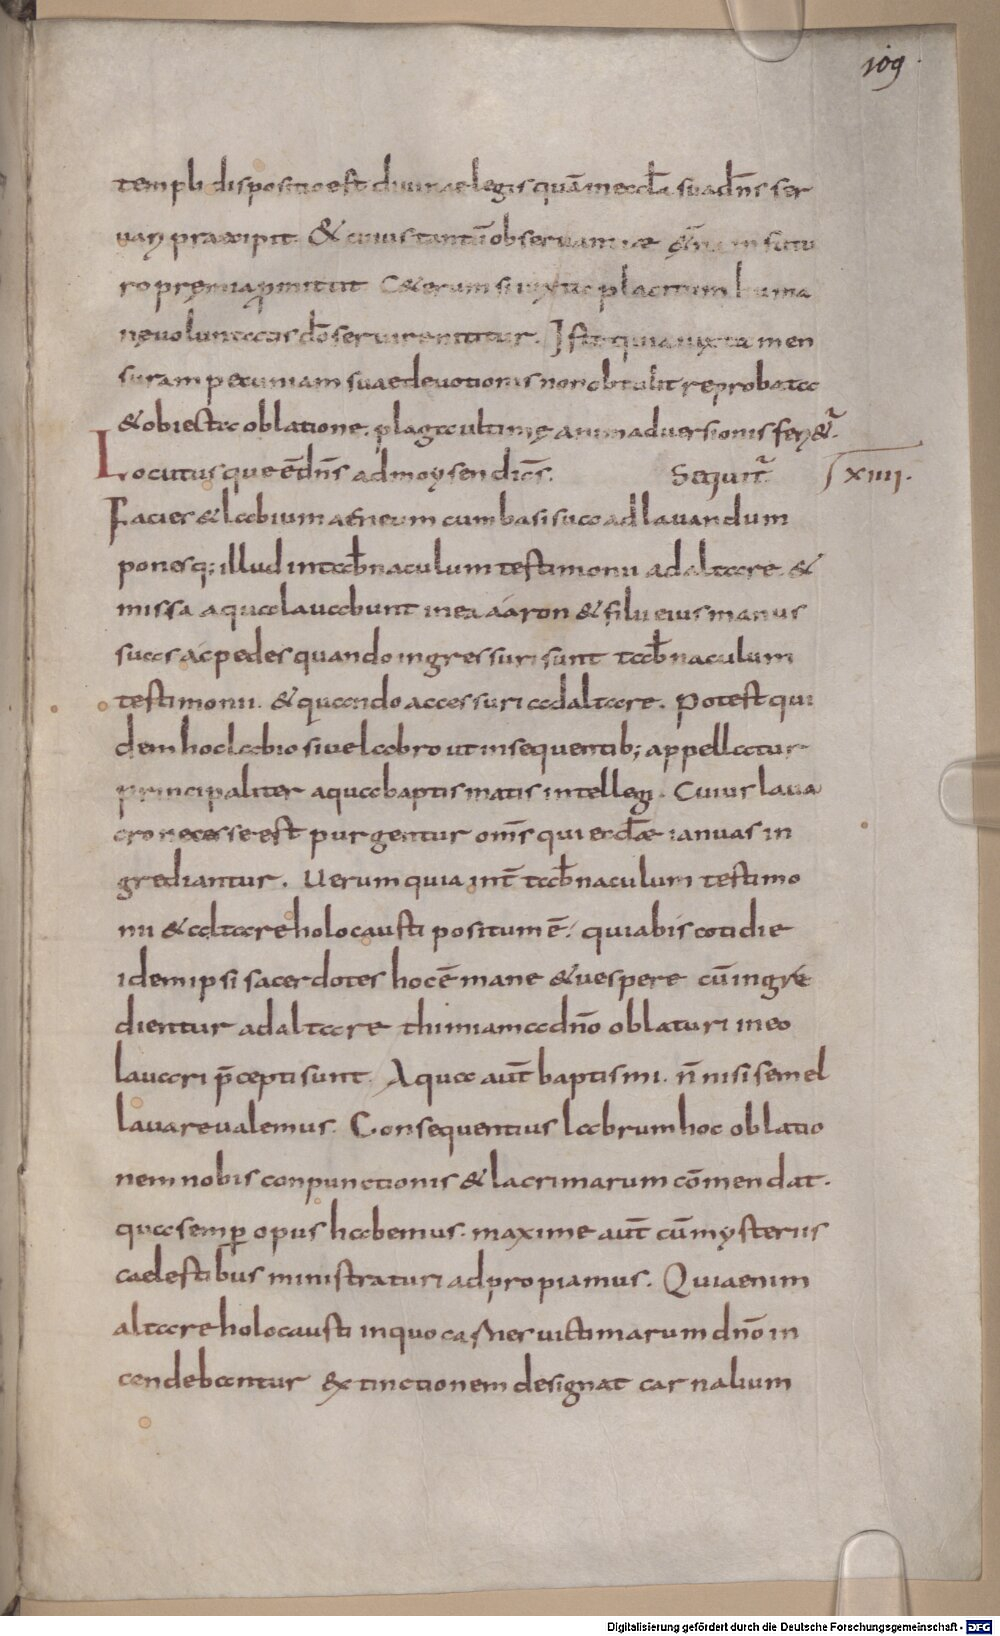 109
templi dispositio est diuinae legis quā in eccl̄a sua dn̄s ser
uari praecipit. & cuius tantū obseruantiae aet̄na in futu
ro pręmia ꝓmittit Caeterum si iuxta placitum huma
nę uoluntatis dō seruire nititur. Iste quia iuxta men
suram pecuniam suae deuotionis non obtulit reprobata
& obiecta oblatione. plaga ultimę animaduersionis feri&̄.
Locutusque ē dn̄s ad moysen dicēs. Sequit̄ xiiii.
Facies & labium aeneum cum basi sua ad lauandum
ponesq; illud in tab̄naculum testimonii ad altare. &
missa aqua lauabunt in ea aáron & filii eius manus
suas ac pedes quando ingressuri sunt tab̄naculum
testimonii. & quando accessuri ad altare. Potest qui
dem hoc labio siue labro ut in sequentib; appellatur
principaliter aqua baptismatis intellegi. Cuius laua
cro necesse est purgentur oms̄ qui eccl̄ae ianuas in
grediantur. Uerum quia int̄ tab̄naculum testimo
nii & altare holocausti positum ē. quia bis cotidie
idem ipsi sacerdotes hoc ē mane & uespere cū ingre
dientur ad altare thimiama dn̄o oblaturi in eo
lauari p̄cepti sunt. Aqua aut̄ baptismi. n̄ nisi semel
lauare ualemus. Consequentius labrum hoc oblatio
nem nobis conpunctionis & lacrimarum cōmendat.
qua semꝑ opus habemus. maxime aut̄ cū mysteriis
caelestibus ministraturi adpropiamus. Quia enim
altare holocausti in quo carnes uictimarum dn̄o in
cendebantur extinctionem designat carnalium
Digitalisierung gefördert durch die Deutsche Forschungsgemeinschaft - DFG